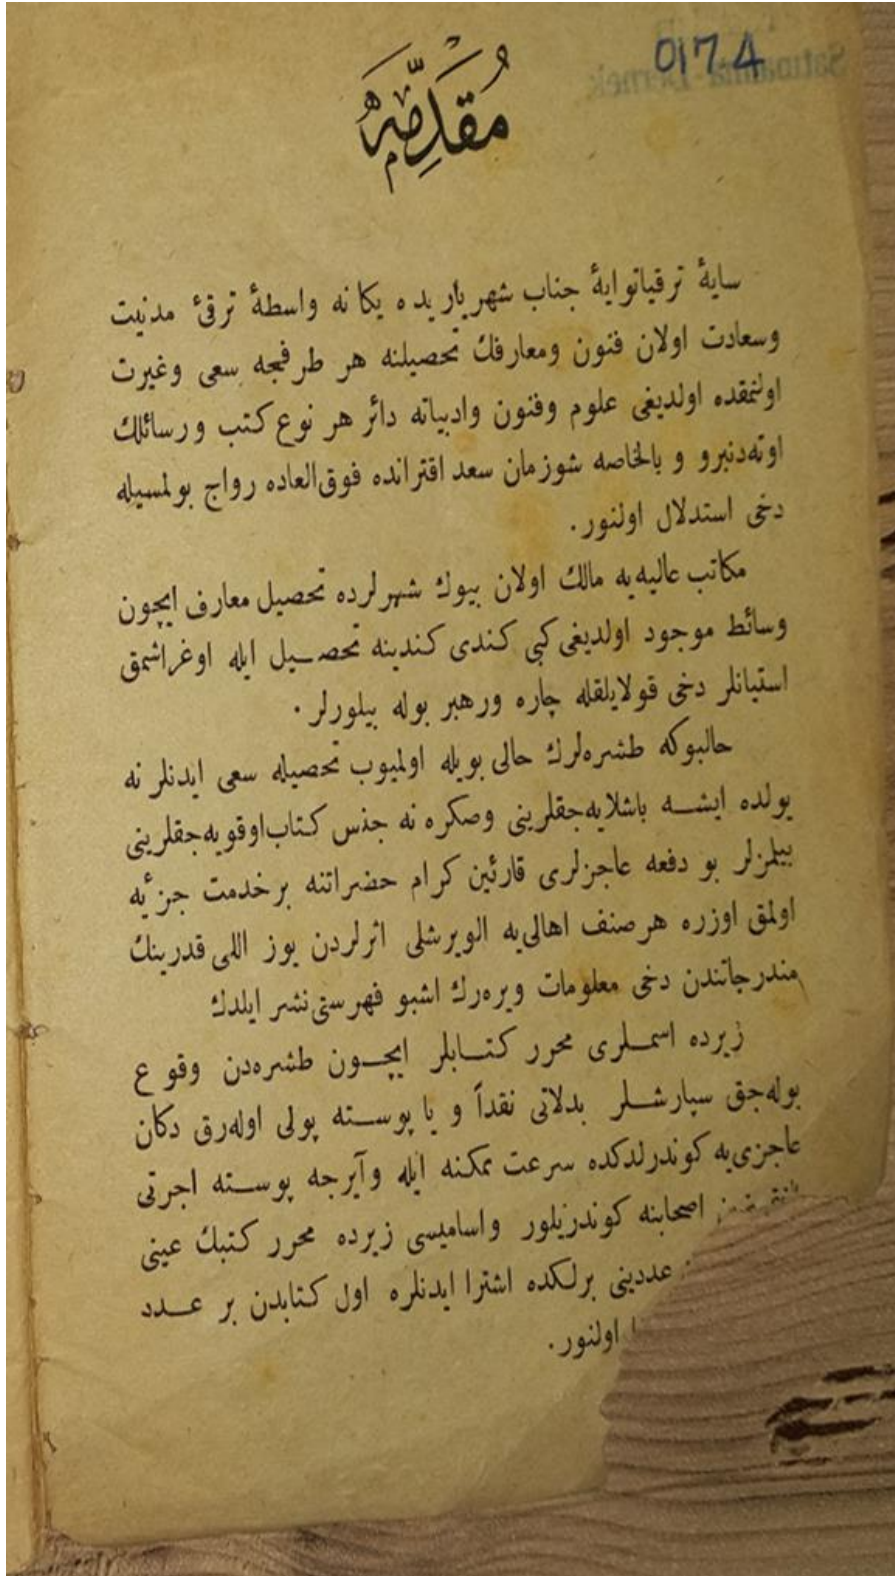 0174
مُقَدِّمَه
سایهٔ ترقیاتوایهٔ جناب شهریاریده یكانه واسطهٔ ترقیٔ مدنیت
وسعادت اولان فنون ومعارفك تحصیلنه هر طرفجه سعی وغیرت
اولنمقده اولدیغی علوم وفنون وادبیاته دائر هر نوع كتب ورسائلك
اوته‌دنبرو و بالخاصه شوزمان سعد اقترانده فوق‌العاده رواج بولمسیله
دخی استدلال اولنور.
مكاتب عالیه‌یه مالك اولان بیوك شهرلرده تحصیل معارف ایچون
وسائط موجود اولدیغی كبی كندی كندینه تحصیل ایله اوغراشمق
استیانلر دخی قولایلقله چاره ورهبر بوله بیلورلر.
حالبوكه طشره‌لرك حالی بویله اولمیوب تحصیله سعی ایدنلر نه
یولده ایشه باشلایه‌جقلرینی وصكره نه جنس كتاب اوقویه‌جقلرینی
بیلمزلر بو دفعه عاجزلری قارئین كرام حضراتنه برخدمت جزٔیه
اولمق اوزره هرصنف اهالی‌یه الویرشلی اثرلردن یوز اللی قدرینك
مندرجاتندن دخی معلومات ویره‌رك اشبو فهرستی نشر ایلدك
زیرده اسملری محرر كتابلر ایچون طشره‌دن وقوع
بوله‌جق سپارشلر بدلاتی نقداً و یا پوسته پولی اوله‌رق دكان
عاجزی‌یه كوندرلدكده سرعت ممكنه ایله وآیرجه پوسته اجرتی
اصحابنه كوندریلور واسامیسی زیرده محرر كتبك عینی
عددینی برلكده اشترا ایدنلره اول كتابدن بر عدد
اولنور.